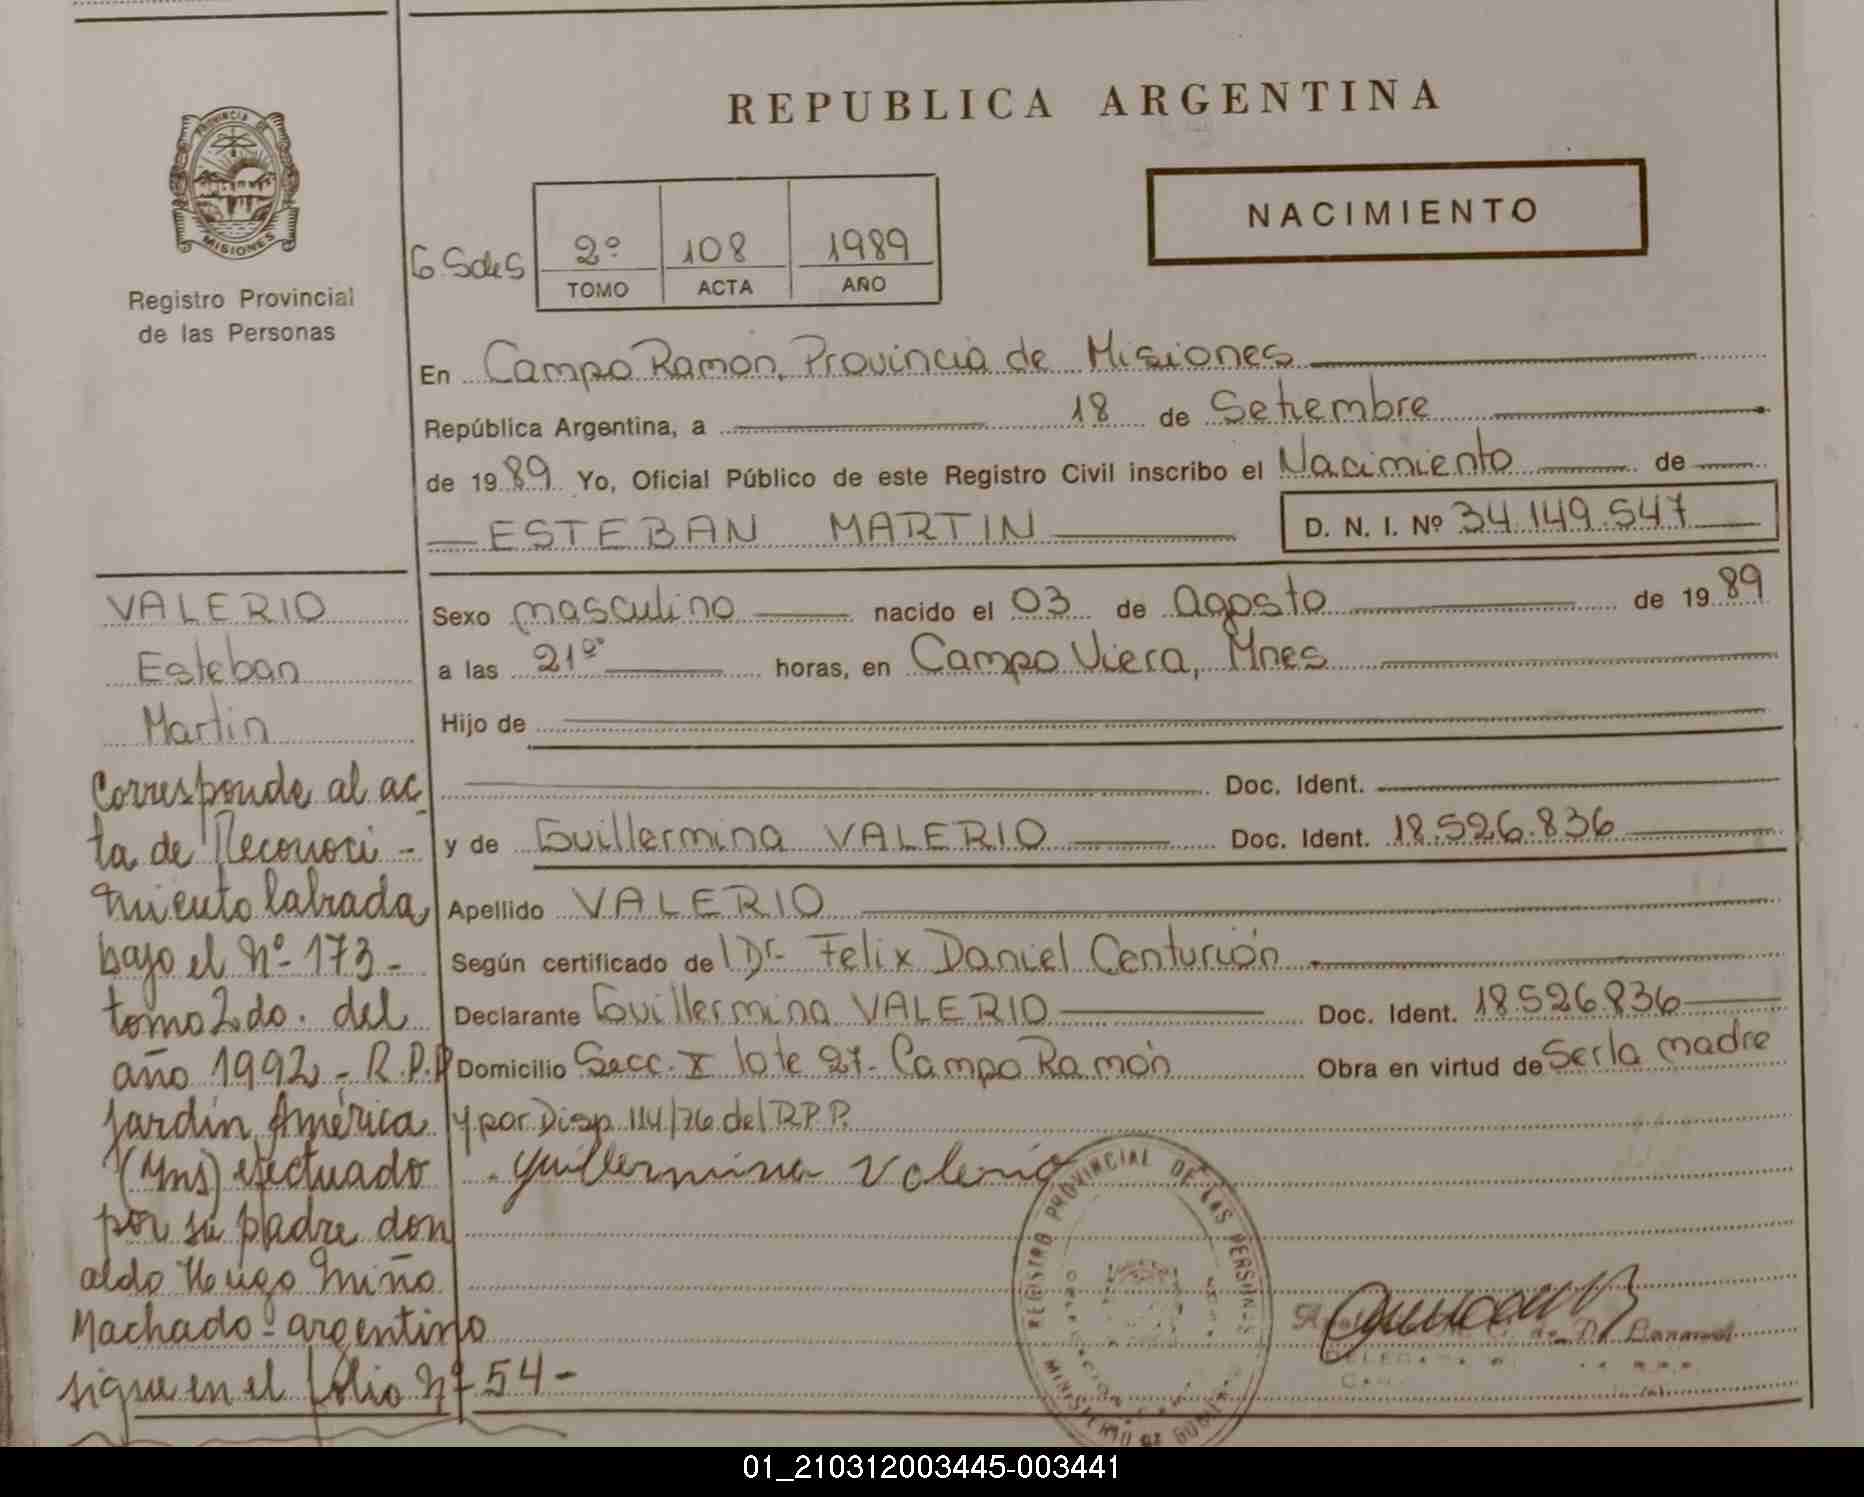 PROVINCIA DE
MISIONES
Registro Provincial
de las Personas
REPUBLICA ARGENTINA
NACIMIENTO
2º 108 1989
TOMO ACTA AÑO
En Campo Ramón, Provincia de Misiones
República Argentina, a 18 de Setiembre
de 1989 Yo, Oficial Público de este Registro Civil inscribo el Nacimiento de
ESTEBAN MARTIN D. N. I. Nº 34.149.547
Sexo masculino nacido el 03 de Agosto de 1989
a las 21ºº horas, en Campo Viera, Mnes
Hijo de
Doc. Ident.
y de Guillermina VALERIO Doc. Ident. 18.526.836
Apellido VALERIO
Según certificado de l Dr. Felix Daniel Centurión
Declarante Guillermina VALERIO Doc. Ident. 18.526.836
Domicilio Secc. X lote 27- Campo Ramón Obra en virtud de Ser la madre
y por Disp. 114/76 del R.P.P.
Guillermina Valerio
REGISTRO PROVINCIAL DE LAS PERSONAS
MINISTERIO DE GOBIERNO
VALERIO
Esteban
Martin
Corresponde al ac
ta de Reconoci-
miento labrada
bajo el Nº 173-
tomo 2do. del
año 1992- R.P.P
Jardín América
(Mns) efectuado
por su padre don
aldo Hugo Miño
Machado- argentino
sigue en el folio Nº 54-
01_210312003445-003441